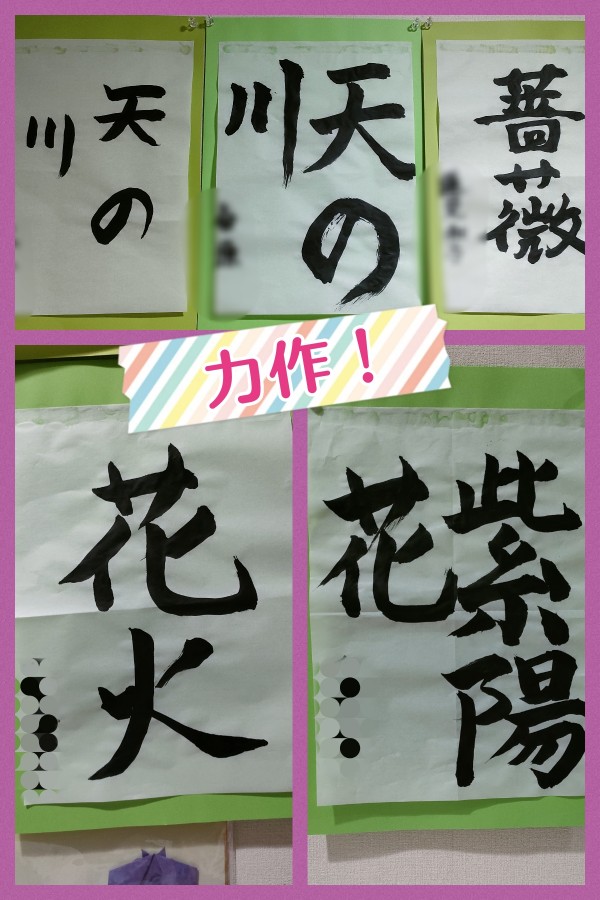 天の
川
天の
川
薔薇
力作！
花火
紫陽
花